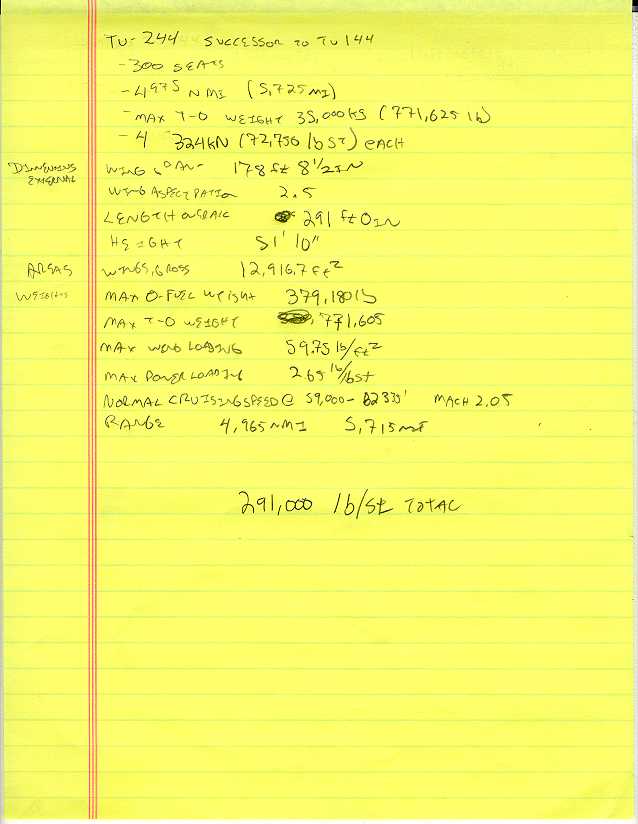 TU-244 SUCCESSOR TO TU144
-300 SEATS
-4975 NMI (5,725MI)
-MAX T-O WEIGHT 35,000KG (771,625 lb)
-4 324KN (72,750 lb ST) EACH
DIMENSIONS EXTERNAL WING SPAN 178 ft 8 1/2 IN
WING ASPECT RATIO 2.5
LENGTH OVERALL 291 ft 0IN
HEIGHT 51' 10"
AREAS WINGS, GROSS 12,916.7 ft²
WEIGHTS MAX O-FUEL WEIGHT 379,180 lb
MAX T-O WEIGHT 771,605
MAX WING LOADING 59.75 lb/ft²
MAX POWER LOADING 2.65 lb/lbst
NORMAL CRUISING SPEED @ 59,000- MACH 2.05
RANGE 4,965 NMI 5,715 MI
291,000 lb/St TOTAL